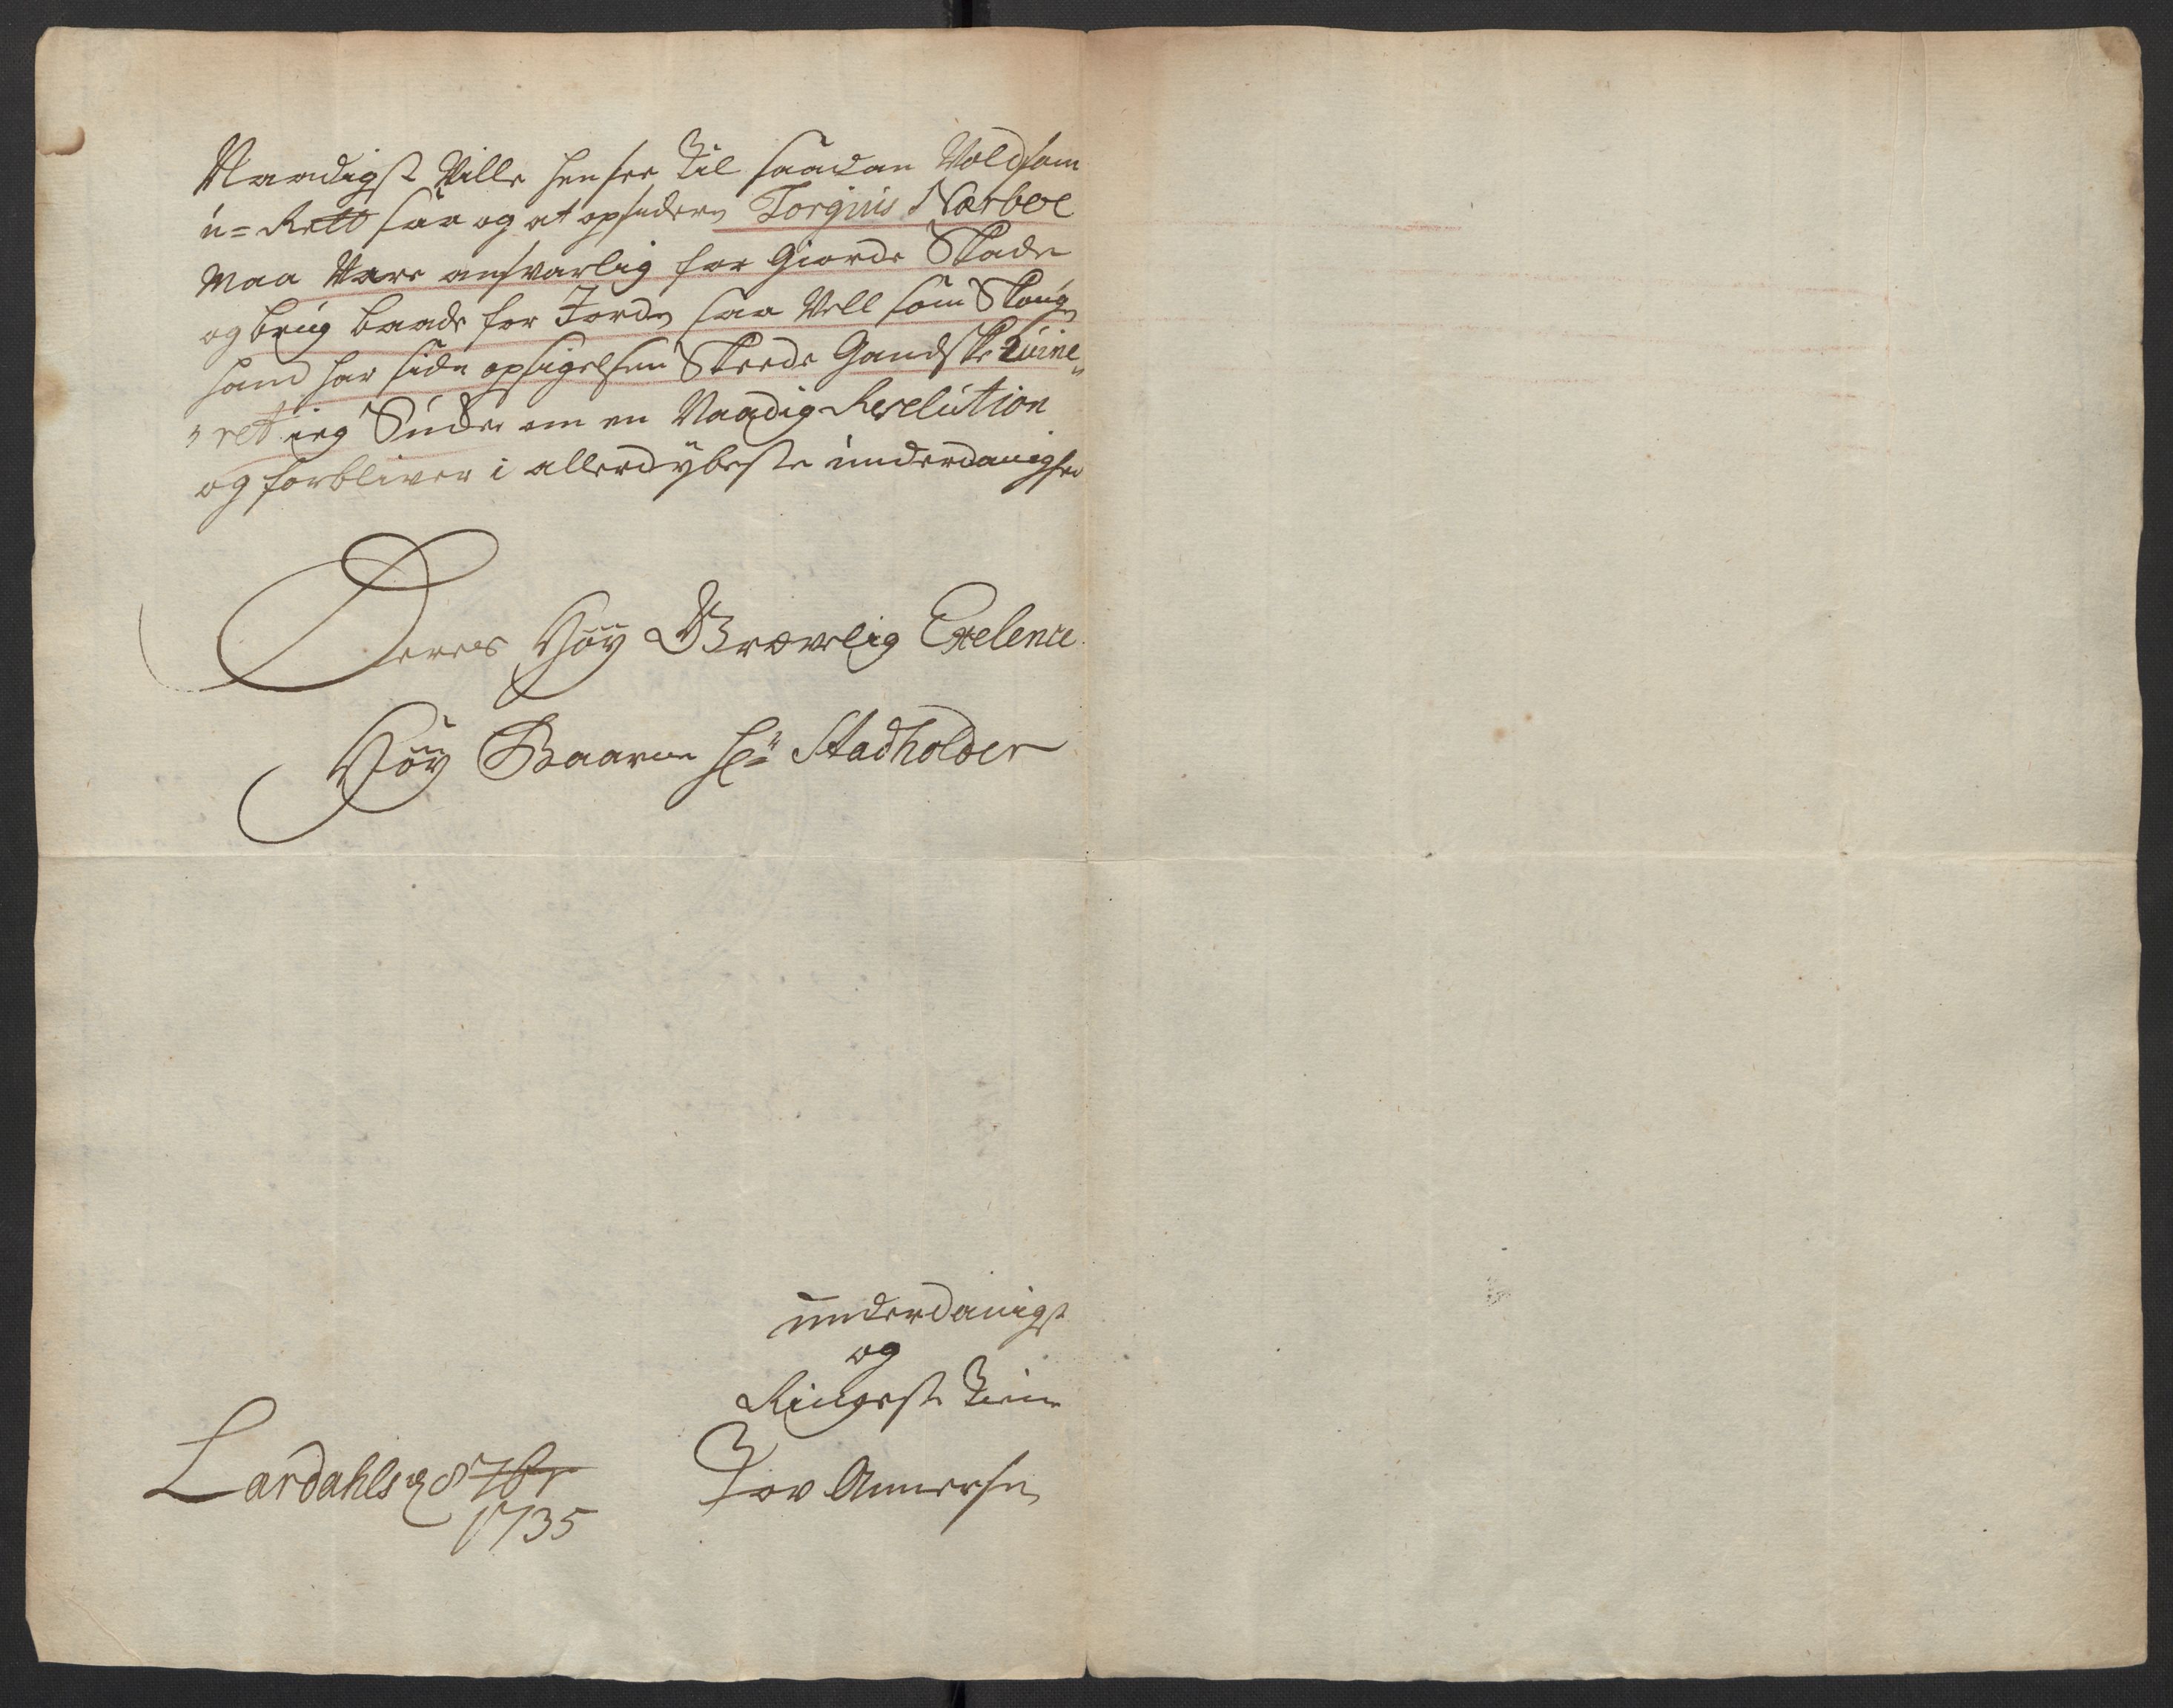 Naadigst Ville hensee til saadan Voldsom
u=Rett saa og at opsideren Torgius Nærboe
maa Være ansvarlig for Giorde Skade
og brug baade for Jorden saa Vell som Skougen
hand har siden opsigelsen Skeede Gandske Ruine„
„ret ieg Sucker om en Naadig Resolution
og forbliver i allerdybeste underdanighed
Deres Høy Grævelig Exelence
Høy Baarne Hr Stadholder
underdanigst
og
Ringeste tiener
Tov Annersen
Lardahls d 8 7br
1735